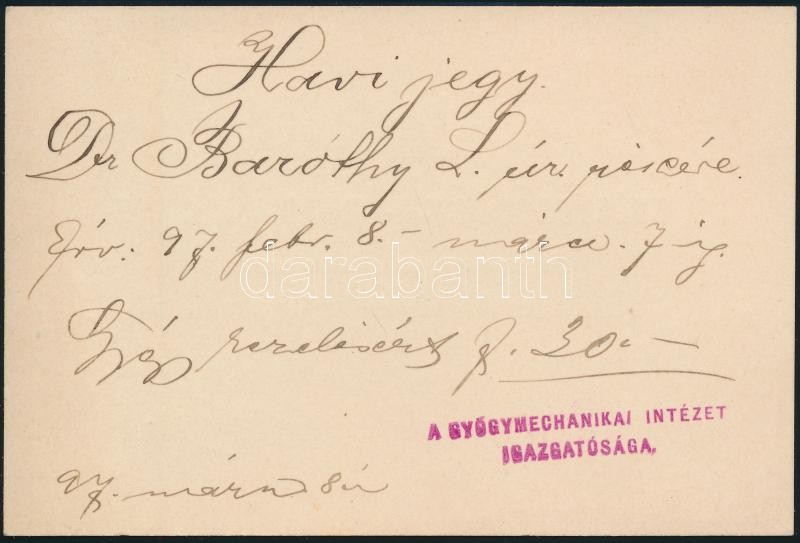 Havi jegy.
Dr Baróthy L. úr részére.
Érv: 97. febr. 8.- márcz. 7-ig.
Gép kezelésért f. 30.-
darabanth
A GYÓGYMECHANIKAI INTÉZET
IGAZGATÓSÁGA.
97. márcz 8án